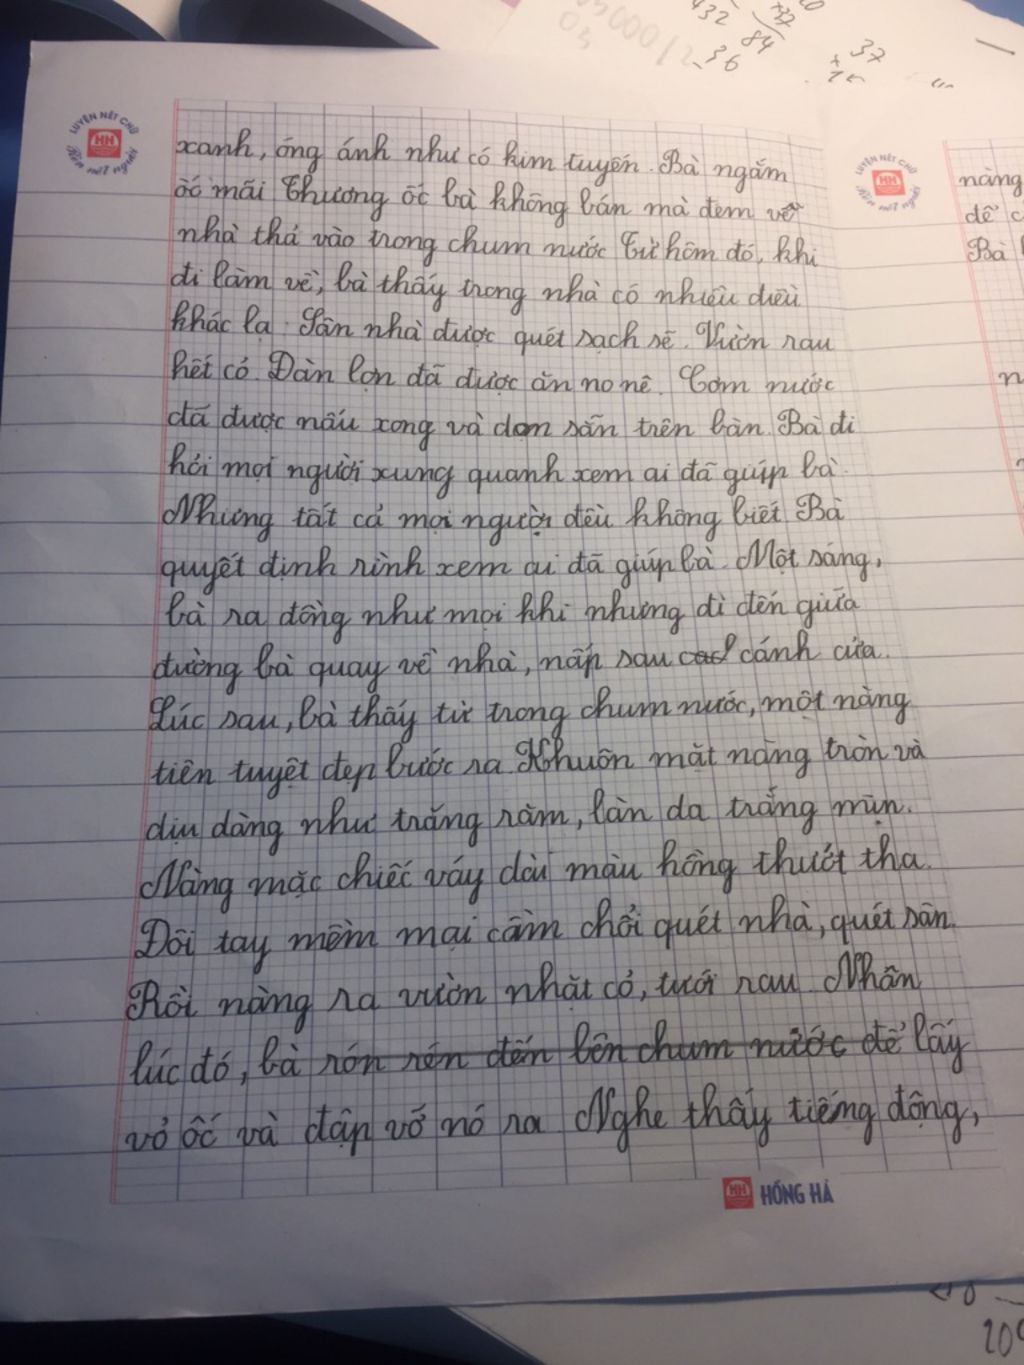 432
84
36
37
LUYỆN NÉT CHỮ
HH
Rèn nết người
xanh, óng ánh như có kim tuyến. Bà ngắm
ốc mãi Thương ốc bà không bán mà đem về
nhà thả vào trong chum nước Từ hôm đó, khi
đi làm về, bà thấy trong nhà có nhiều điều
khác lạ. Sân nhà được quét sạch sẽ. Vườn rau
hết cỏ. Đàn lợn đã được ăn no nê. Cơm nước
đã được nấu xong và dọn sẵn trên bàn. Bà đi
hỏi mọi người xung quanh xem ai đã giúp bà.
Nhưng tất cả mọi người đều không biết Bà
quyết định rình xem ai đã giúp bà. Một sáng,
bà ra đồng như mọi khi nhưng đi đến giữa
đường bà quay về nhà, nấp sau cánh cửa.
Lúc sau, bà thấy từ trong chum nước, một nàng
tiên tuyệt đẹp bước ra. Khuôn mặt nàng tròn và
dịu dàng như trăng rằm, làn da trắng mịn.
Nàng mặc chiếc váy dài màu hồng thướt tha.
Đôi tay mềm mại cầm chổi quét nhà, quét sân.
Rồi nàng ra vườn nhặt cỏ, tưới rau. Nhân
lúc đó, bà rón rén đến bên chum nước để lấy
vỏ ốc và đập vỡ nó ra Nghe thấy tiếng động,
HH HỒNG HÀ
LUYỆN NÉT CHỮ
HH
Rèn nết người
nàng
để c
Bà
n